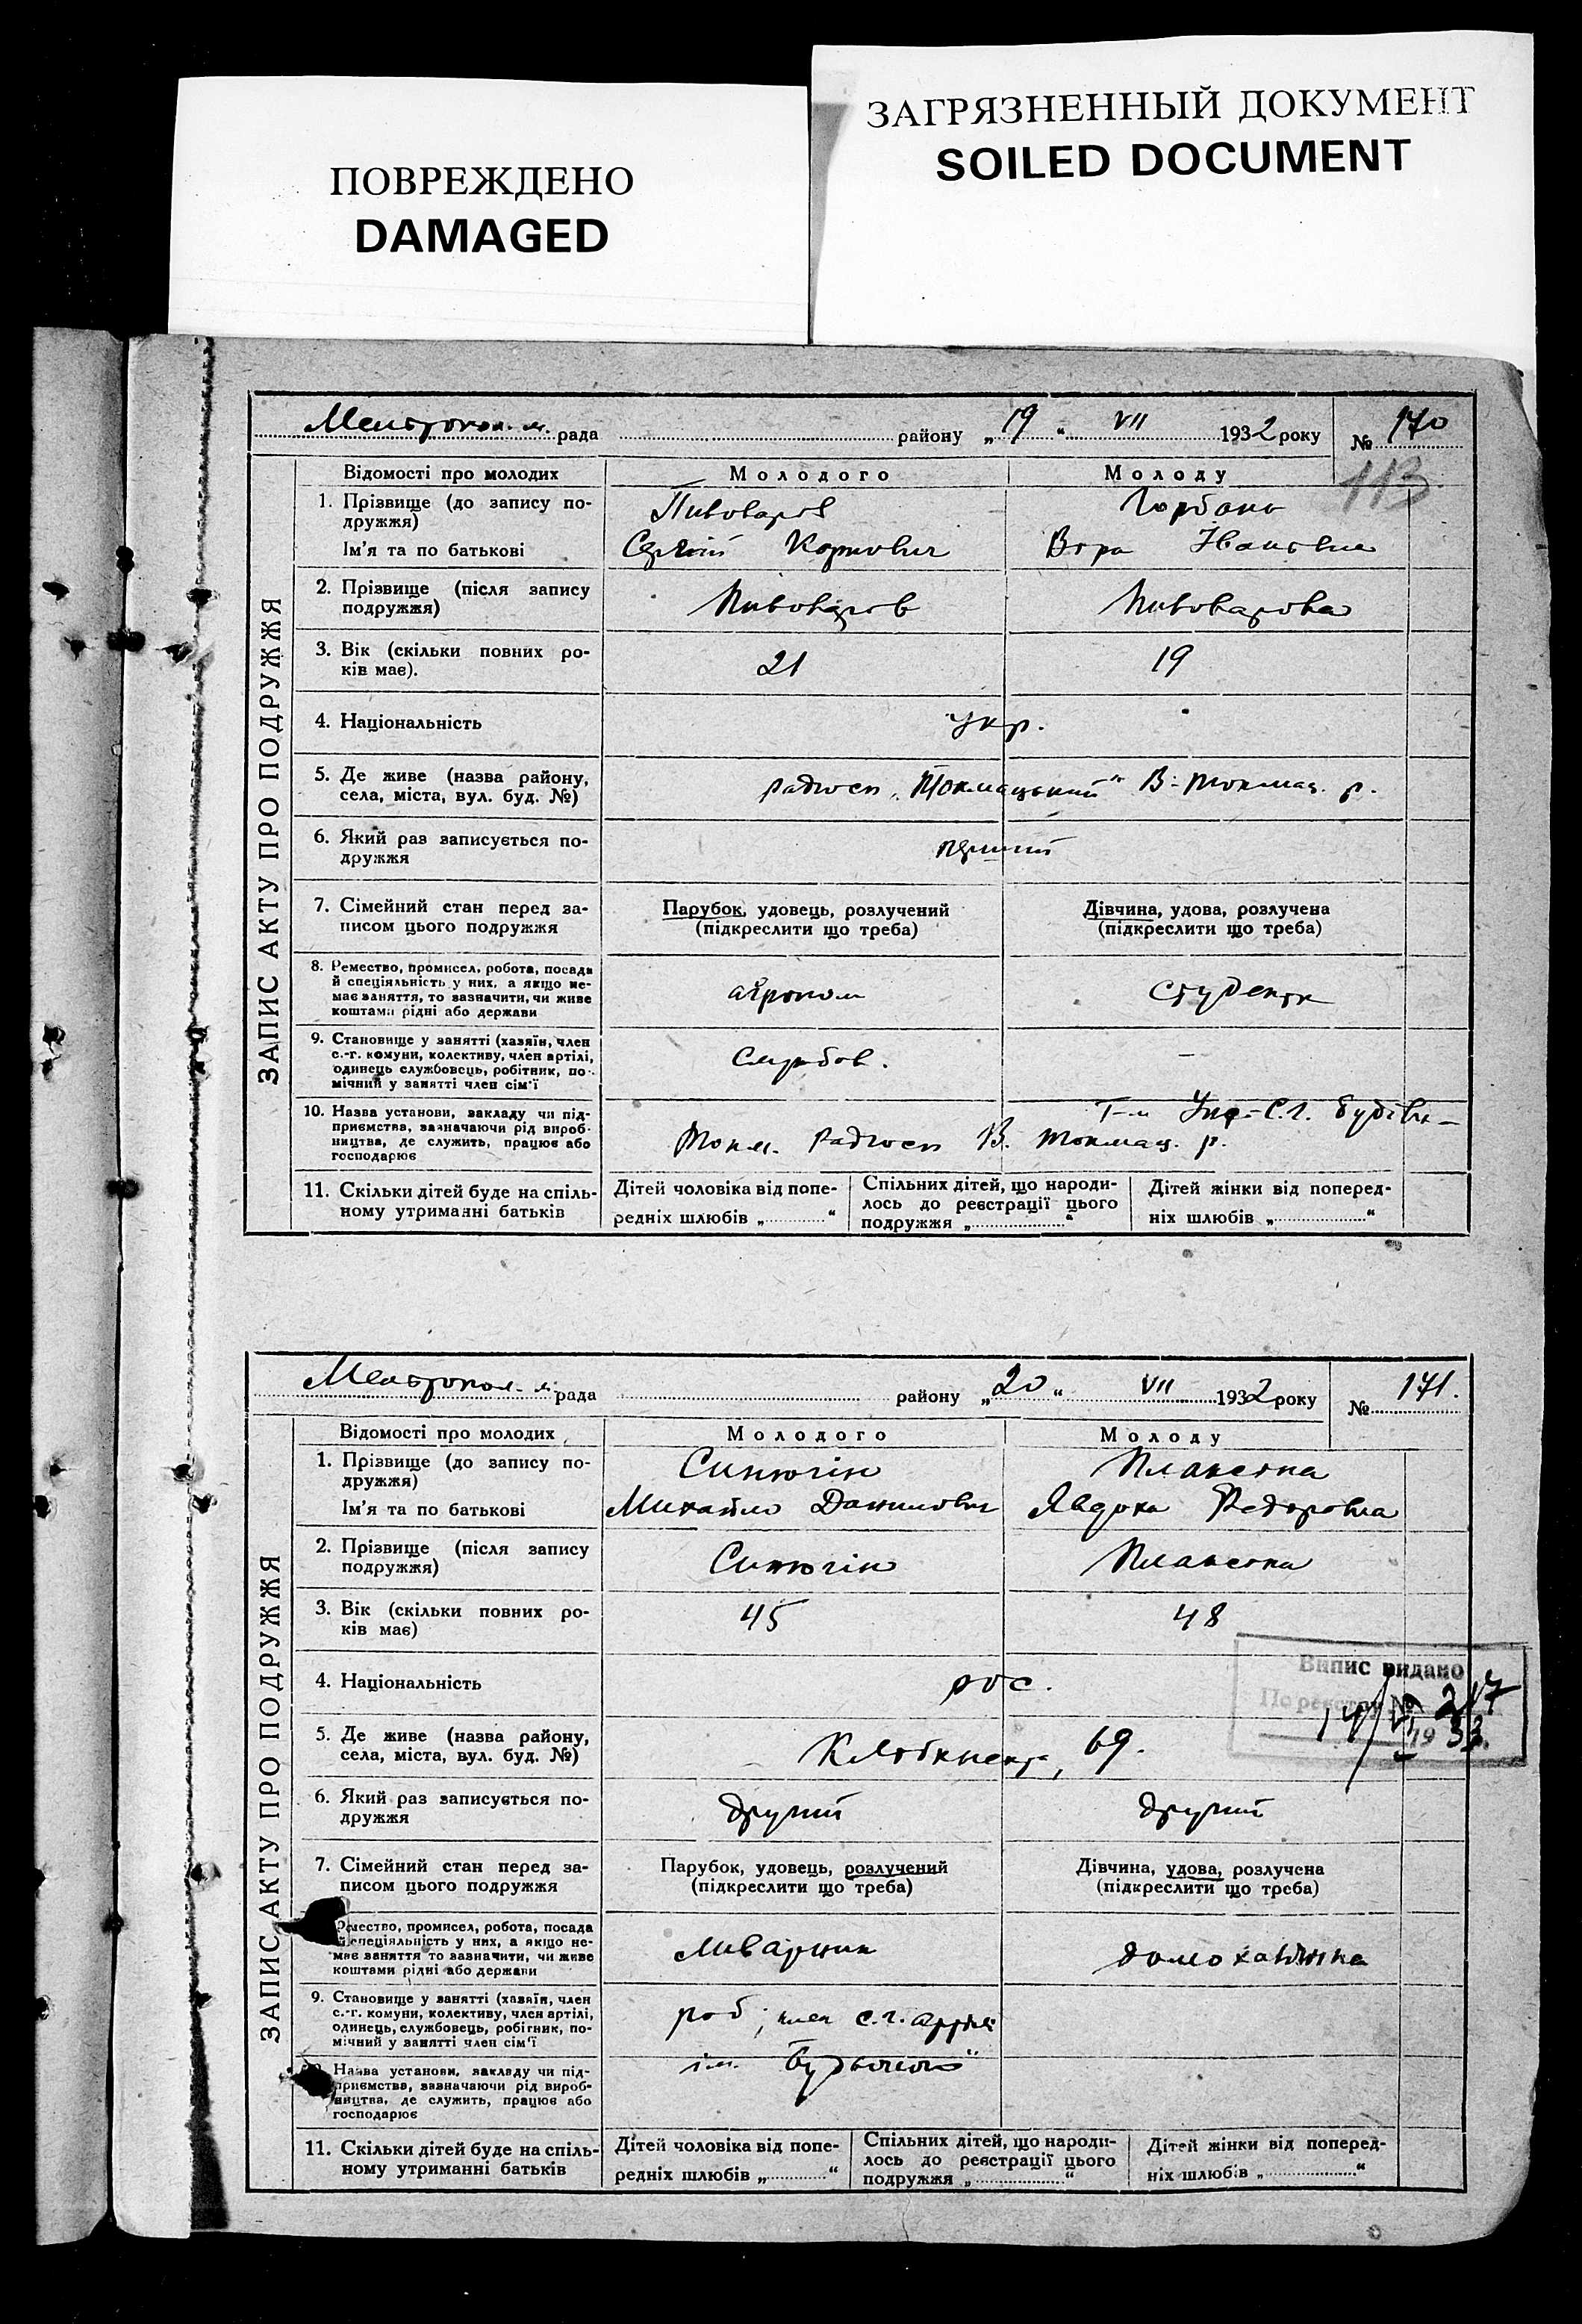 ПОВРЕЖДЕНО
DAMAGED
ЗАГРЯЗНЕННЫЙ ДОКУМЕНТ
SOILED DOCUMENT
Мелітопол. м. рада района „19“ VII 1932 року № 170
113
ЗАПИС АКТУ ПРО ПОДРУЖЖЯ
Відомості про молодих Молодого Молоду
1. Прізвище (до запису по-
дружжя) Пивоваров Горбань
Ім'я та по батькові Сергій Карпович Вера Івановна
2. Прізвище (після запису
подружжя) Пивоваров Пивоварова
3. Вік (скільки повних ро-
ків має). 21 19
4. Національність укр.
5. Де живе (назва району,
села, міста, вул. буд. №) радгосп „Токмацький“ В-Токмац. р.
6. Який раз записується по-
дружжя перший
7. Сімейний стан перед за- Парубок, удовець, розлучений Дівчина, удова, розлучена
писом цього подружжя (підкреслити що треба) (підкреслити що треба)
8. Ремество, промисел, робота, посада
й спеціяльність у них, а якщо не-
має заняття, то зазначити, чи живе
коштами рідні або держави агроном студентк
9. Становище у занятті (хазяїн, член
с.-г. комуни, колективу, член артілі,
одинець службовець, робітник, по-
мічний у занятті член сім'ї службов. —
10. Назва установи, закладу чи під-
приємства, зазначаючи рід вироб-
ництва, де служить, працює або
господарює Токм. радгосп В. Токмац. р. С.Г. будівн-
11. Скільки дітей буде на спіль- Дітей чоловіка від попе- Спільних дітей, що народи- Дітей жінки від поперед-
ному утриманні батьків редніх шлюбів „ “ лось до реєстрації цього ніх шлюбів „ “
подружжя „ “
Мелітопол. м. рада району „20“ VII 1932 року № 171.
ЗАПИС АКТУ ПРО ПОДРУЖЖЯ
Відомості про молодих Молодого Молоду
1. Прізвище (до запису по-
дружжя) Синюгін
Ім'я та по батькові Михайло Данилович Явдоха Федоровна
2. Прізвище (після запису
подружжя) Синюгін
3. Вік (скільки повних ро-
ків має) 45 48
4. Національність рос.
Випис видано
По реєстру № 217
14/VI 1933.
5. Де живе (назва району,
села, міста, вул. буд. №) 69.
6. Який раз записується по-
дружжя другий другий
7. Сімейний стан перед за- Парубок, удовець, розлучений Дівчина, удова, розлучена
писом цього подружжя (підкреслити що треба) (підкреслити що треба)
Ремество, промисел, робота, посада
й спеціяльність у них, а якщо не-
має заняття то зазначити, чи живе
коштами рідні або держави ливарник домохазяйка
9. Становище у занятті (хазяїн, член
с.-г. комуни, колективу, член артілі,
одинець, службовець, робітник, по-
мічний у занятті член сім'ї роб, член с.г. артілі
Назва установи, закладу чи під-
приємства, зазначаючи рід вироб-
ництва, де служить, працює або
господарює ім. Будьоного“
11. Скільки дітей буде на спіль- Дітей чоловіка від попе- Спільних дітей, що народи- Дітей жінки від поперед-
ному утриманні батьків редніх шлюбів „ “ лось до реєстрації цього ніх шлюбів „ “
подружжя „ “